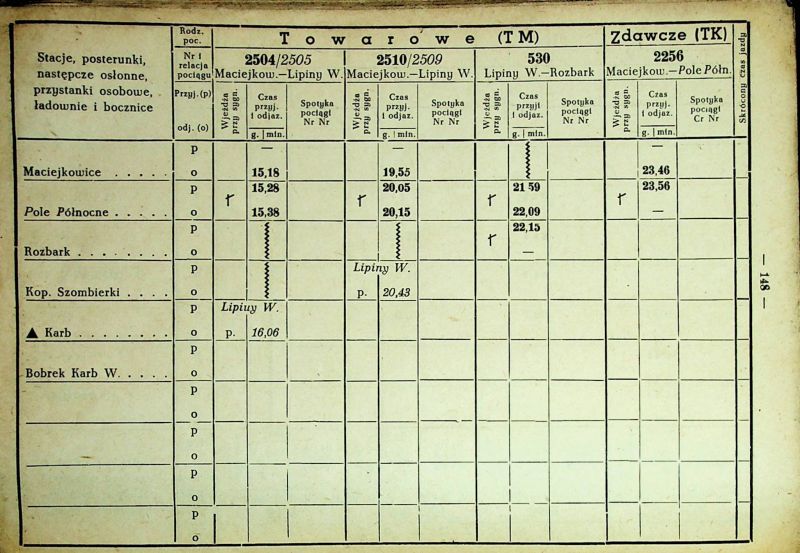 Stacje, posterunki,
następcze osłonne,
przystanki osobowe,
ładownie i bocznice
Rodz. poc.
Nr i relacja pociągu
Przyj. (p)
odj. (o)
Towarowe (TM)
Zdawcze (TK)
2504/2505
Maciejkow.—Lipiny W.
2510/2509
Maciejkow.—Lipiny W.
530
Lipiny W.—Rozbark
2256
Maciejkow.—Pole Półn.
Skrócony czas jazdy
Wjeżdża przy sygn.
Czas przyj. i odjaz.
g. | min.
Spotyka pociągi Nr Nr
Wjeżdża przy sygn.
Czas przyj. i odjaz.
g. | min.
Spotyka pociągi Nr Nr
Wjeżdża przy sygn.
Czas przyj i odjaz.
g. | min.
Spotyka pociągi Nr Nr
Wjeżdża przy sygn.
Czas przyj. i odjaz.
g. | min.
Spotyka pociągi Cr Nr
p — — —
Maciejkowice . . . . . o 15,18 19,55 23,46
p 15,28 20,05 21 59 23,56
Pole Północne . . . . . o 15,38 20,15 22,09 —
p 22,15
Rozbark . . . . . . . . . o —
p Lipiny W.
Kop. Szombierki . . . . o p. 20,43
p Lipiuy W.
▲ Karb . . . . . . . . o p. 16,06
p
Bobrek Karb W. . . . . o
p
o
p
o
p
o
p
o
— 148 —